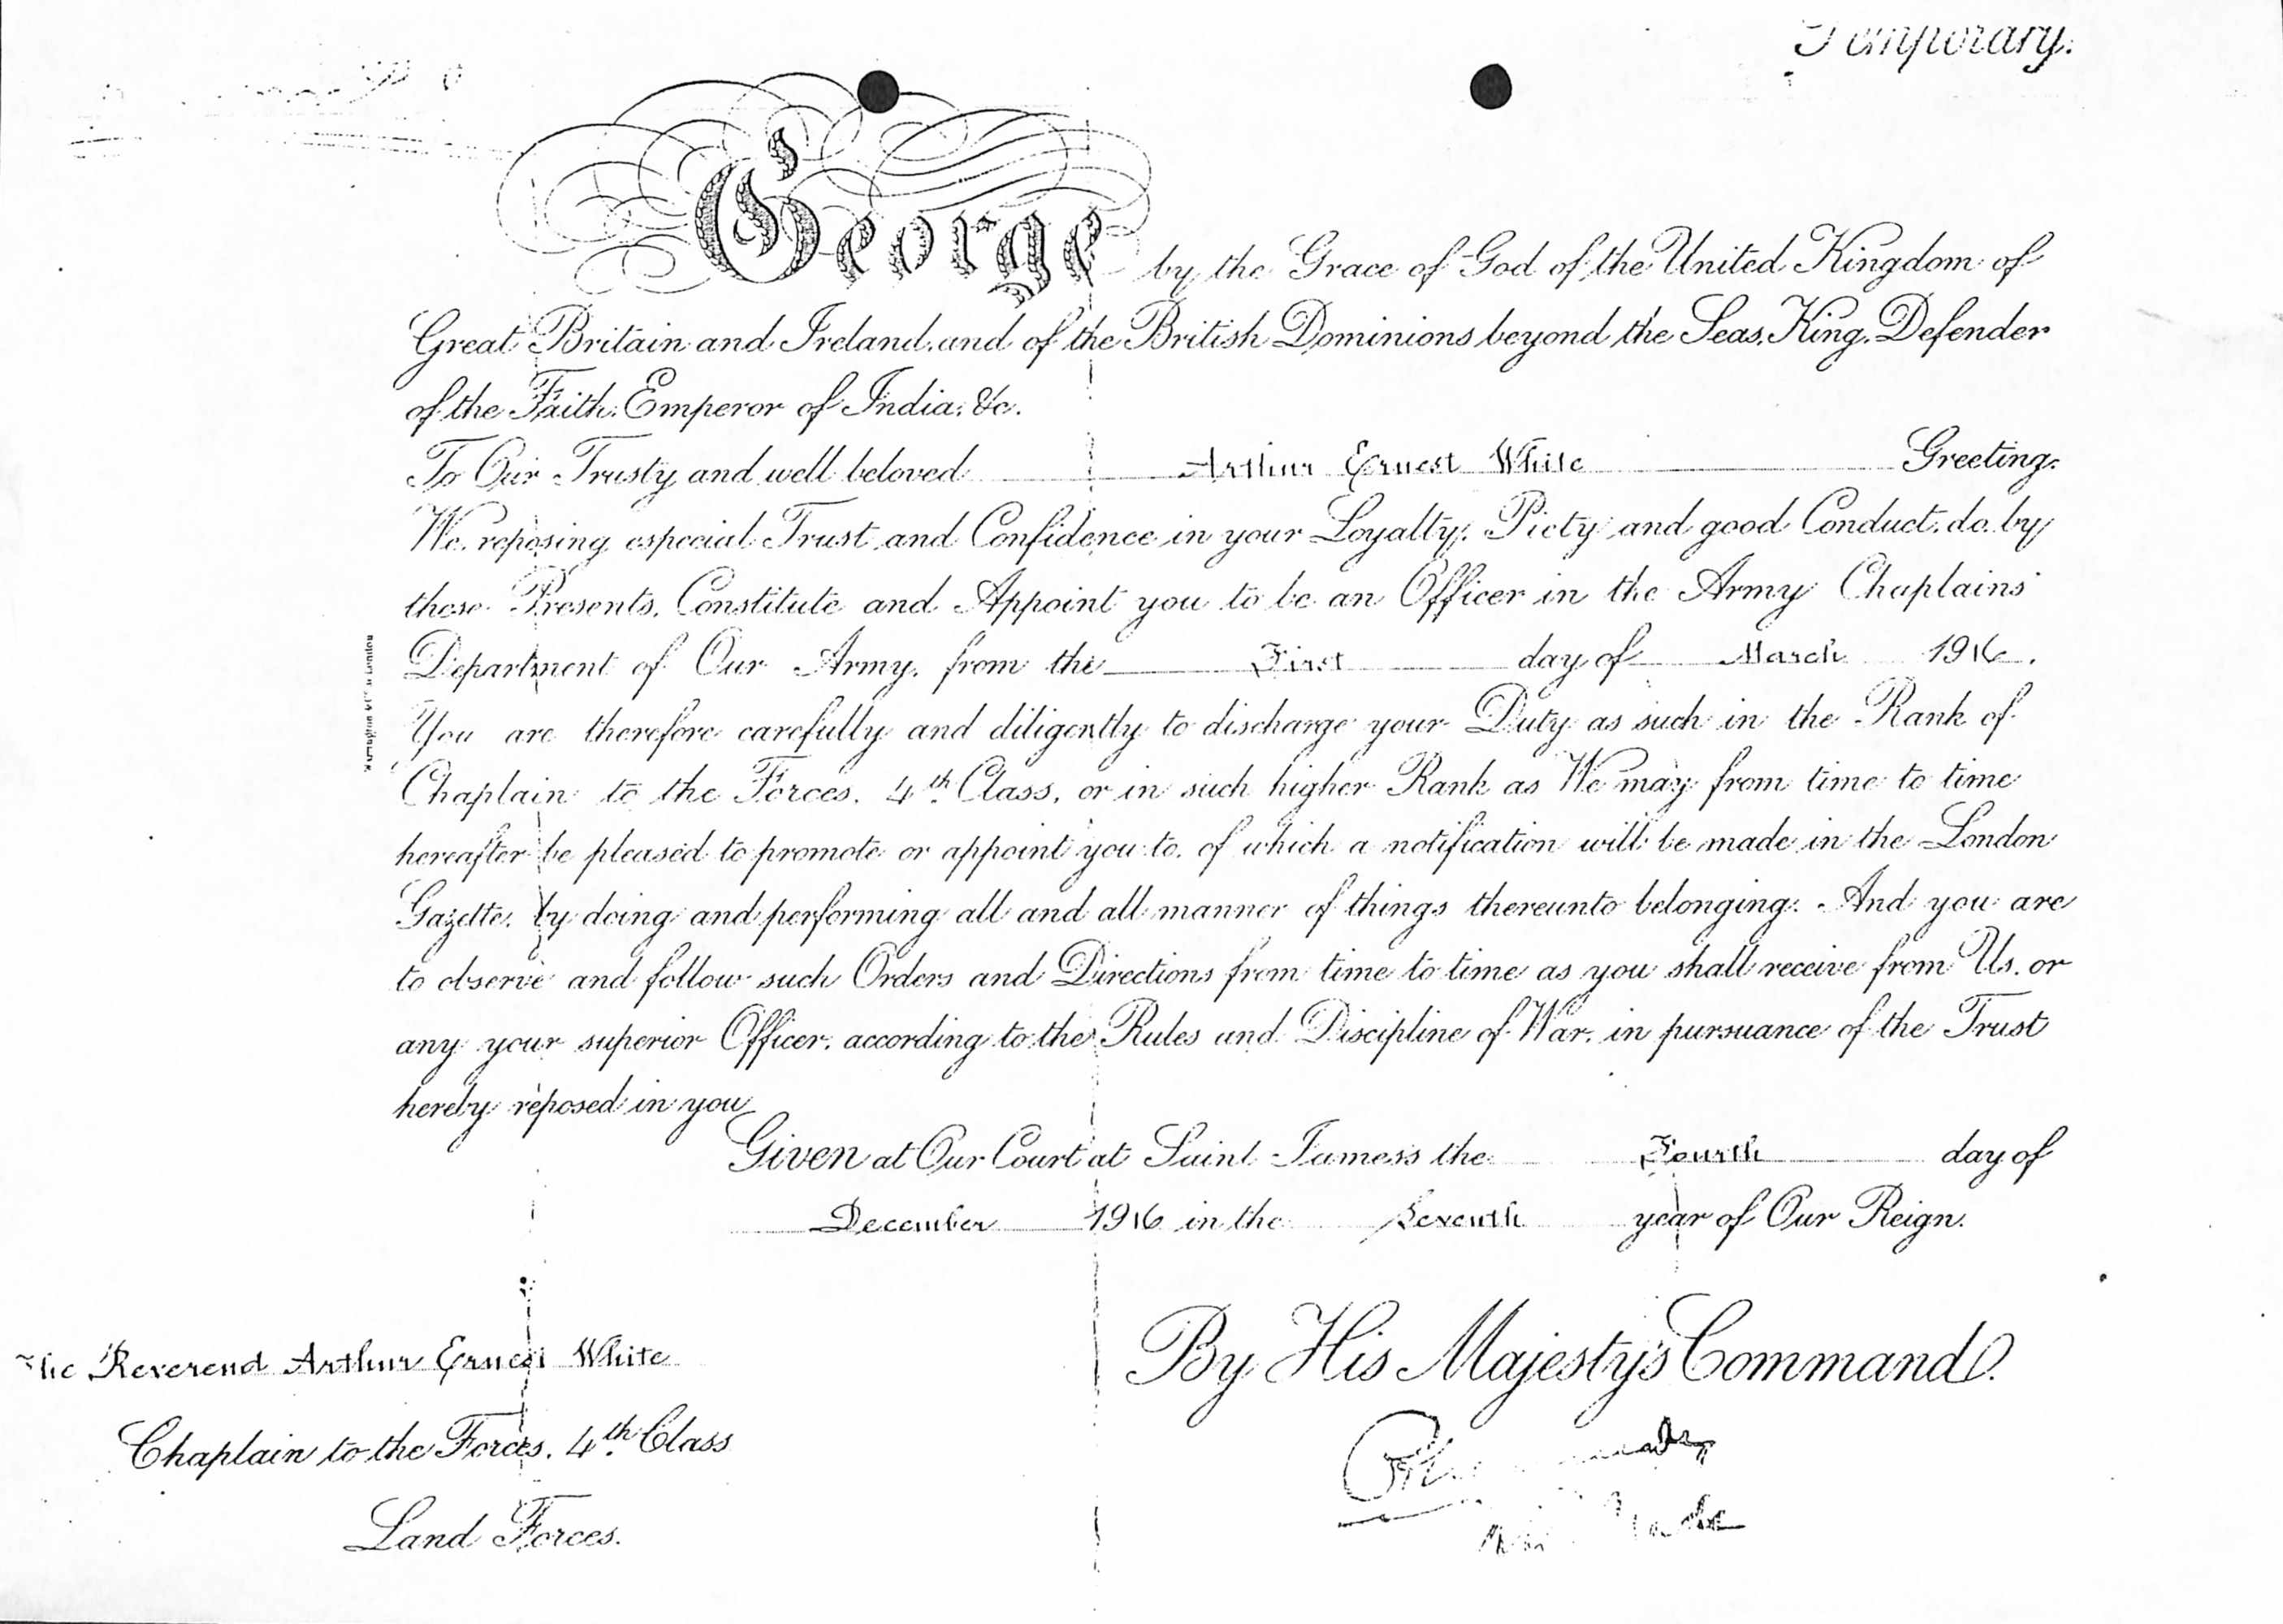 Temporary.
George by the Grace of God of the United Kingdom of
Great Britain and Ireland, and of the British Dominions beyond the Seas, King, Defender
of the Faith, Emperor of India, &c.
To Our Trusty and well beloved Arthur Ernest White Greeting.
We, reposing especial Trust and Confidence in your Loyalty, Piety and good Conduct, do by
these Presents, Constitute and Appoint you to be an Officer in the Army Chaplains'
Department of Our Army, from the First day of March 1916.
You are therefore carefully and diligently to discharge your Duty as such in the Rank of
Chaplain to the Forces, 4th Class, or in such higher Rank as We may from time to time
hereafter be pleased to promote or appoint you to, of which a notification will be made in the London
Gazette, by doing and performing all and all manner of things thereunto belonging. And you are
to observe and follow such Orders and Directions from time to time as you shall receive from Us, or
any your superior Officer, according to the Rules and Discipline of War, in pursuance of the Trust
hereby reposed in you
Given at Our Court at Saint James's the Fourth day of
December 1916 in the Seventh year of Our Reign.
By His Majesty's Command.
The Reverend Arthur Ernest White
Chaplain to the Forces, 4th Class
Land Forces.